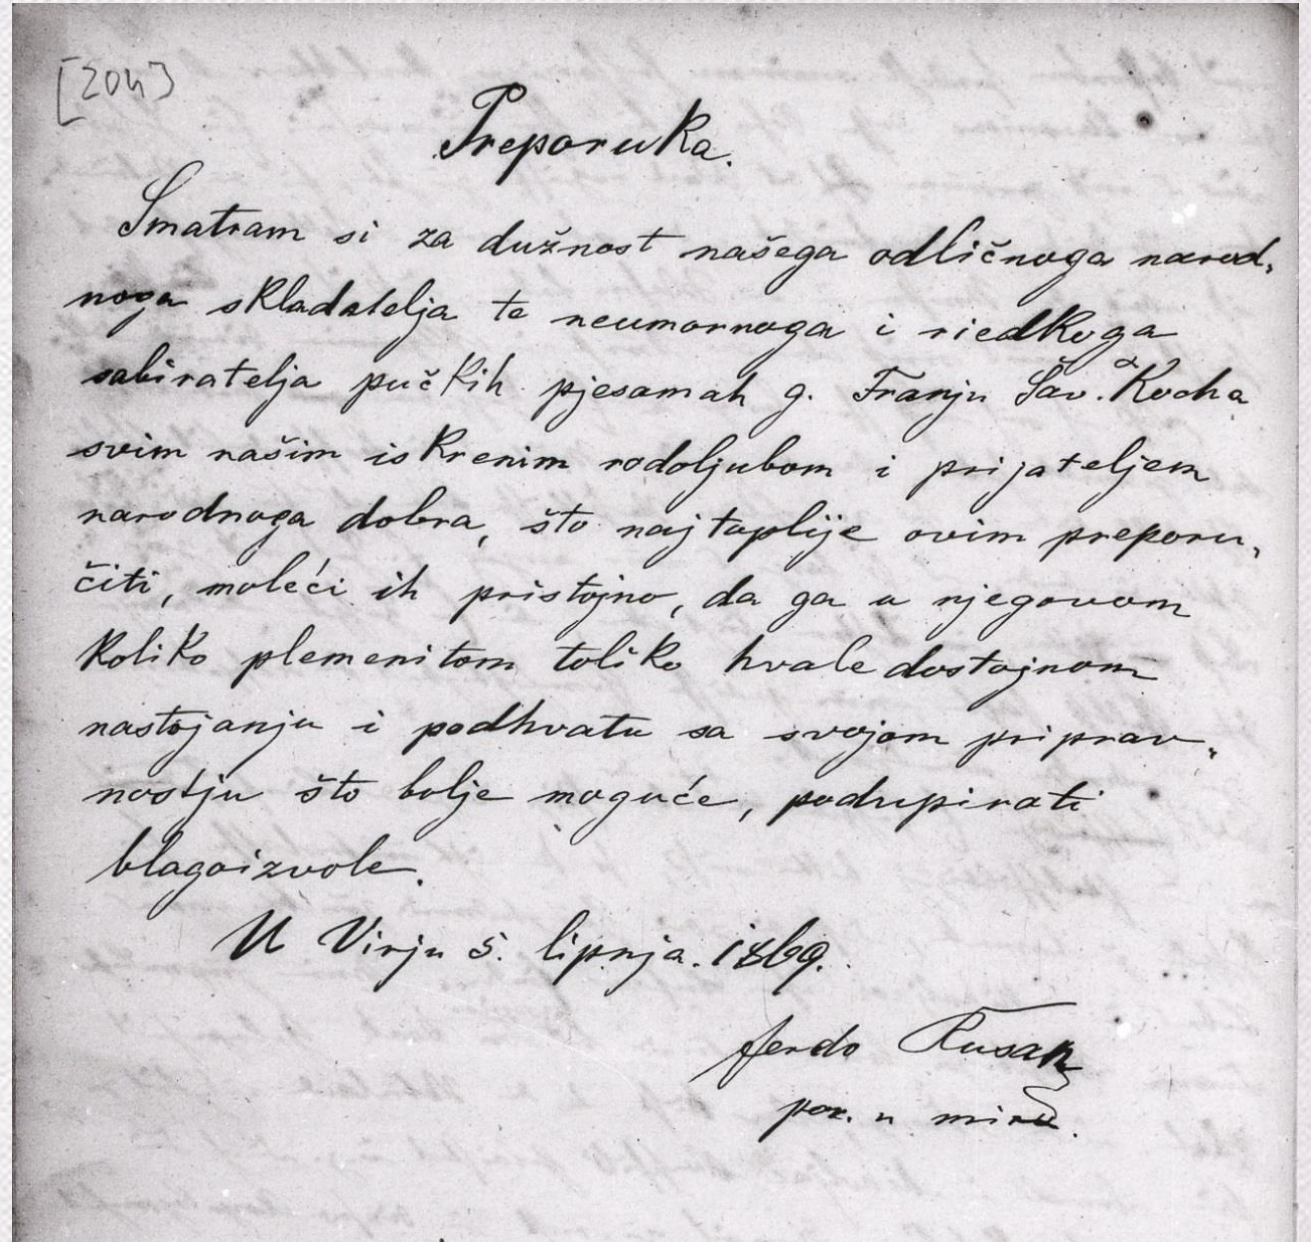 [204]
Preporuka.
Smatram si za dužnost našega odličnoga narod,
noga skladatelja te neumornoga i riedkoga
sabiratelja pučkih pjesamah g. Franju Šav. Kocha
svim našim iskrenim rodoljubom i prijateljem
narodnoga dobra, što najtoplije ovim preporu,
čiti, moleći ih pristojno, da ga u njegovom
koliko plemenitom toliko hvale dostojnom
nastojanju i podhvatu sa svojom priprav,
nostju što bolje moguće, podupirati
blagoizvole.
U Virju 5. lipnja. 1869.
Ferdo Rusan
por. u miru.